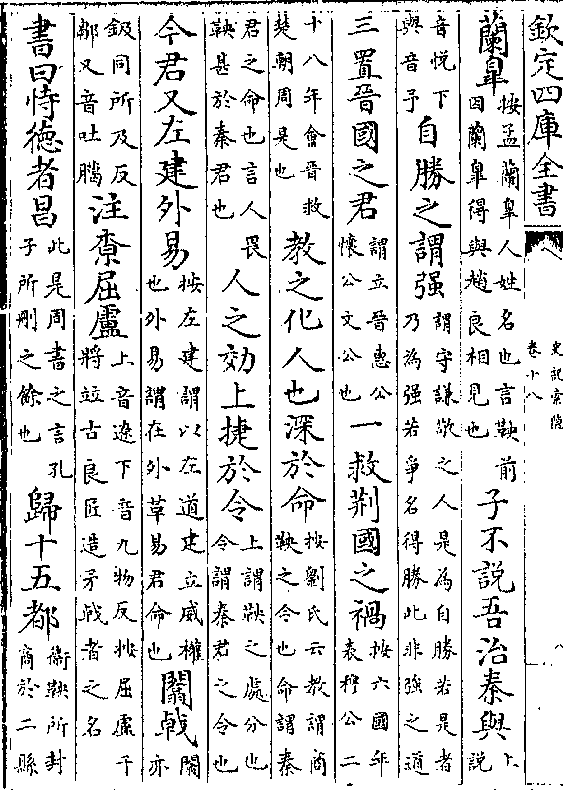 欽定四庫全書
史記索隱
卷十八
八
蘭臯按孟蘭臯人姓名也言鞅前
因蘭臯得與趙良相見也子不說吾治秦與上
說
音悅下
與音予自勝之謂强謂守謙敬之人是為自勝若是者
乃為强若爭名得勝此非強之道
三置晉國之君謂立晉惠公
懷公文公也一救荆國之禍按六國年
表穆公二
十八年會晉救
楚朝周是也教之化人也深於命按劉氏云教謂商
鞅之令也命謂秦
君之命也言人畏
鞅甚於秦君也人之効上捷於令上謂鞅之處分也
令謂秦君之令也
今君又左建外易按左建謂以左道建立威權
也外易謂在外革易君命也闟戟闟
亦
鈒同所及反
鄒又音吐臘注尞屈盧上音遼下音九物反按屈盧干
將竝古良匠造矛戟者之名
書曰恃德者昌此是周書之言孔
子所刪之餘也歸十五都衛鞅所封
商於二縣